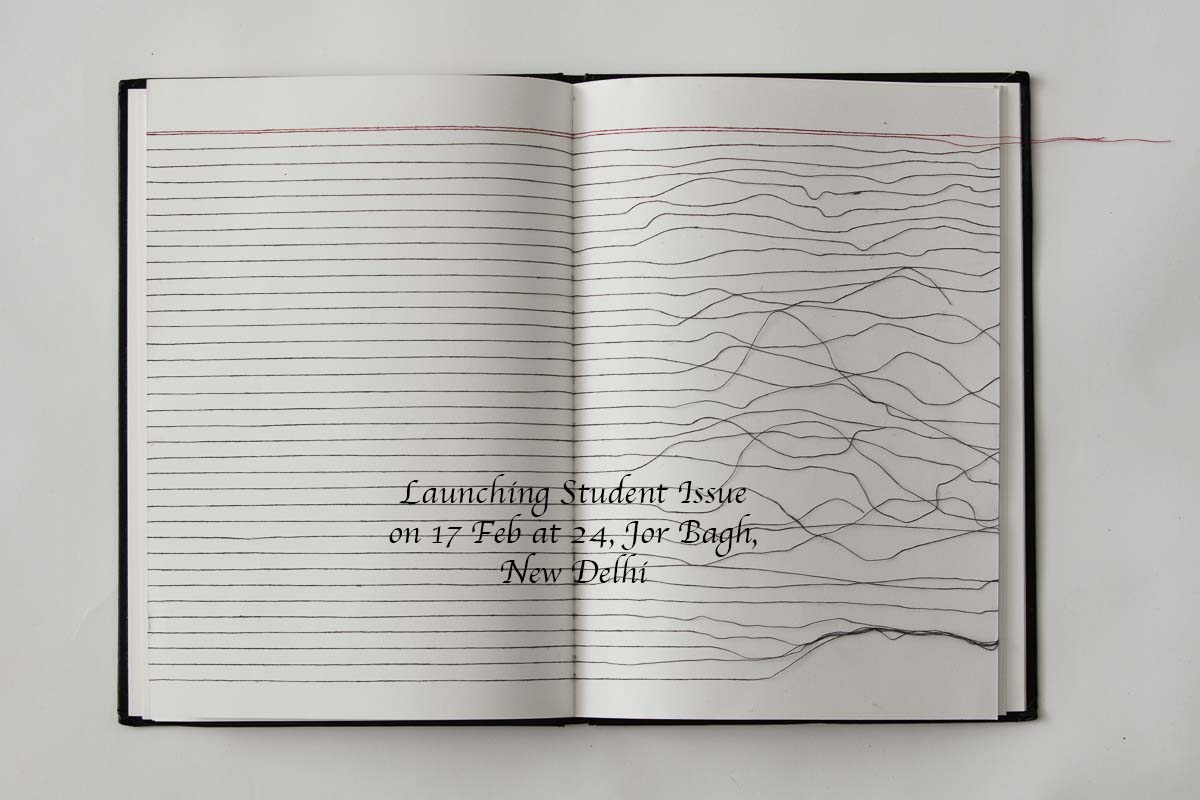 Launching Student Issue
on 17 Feb at 24, Jor Bagh,
New Delhi